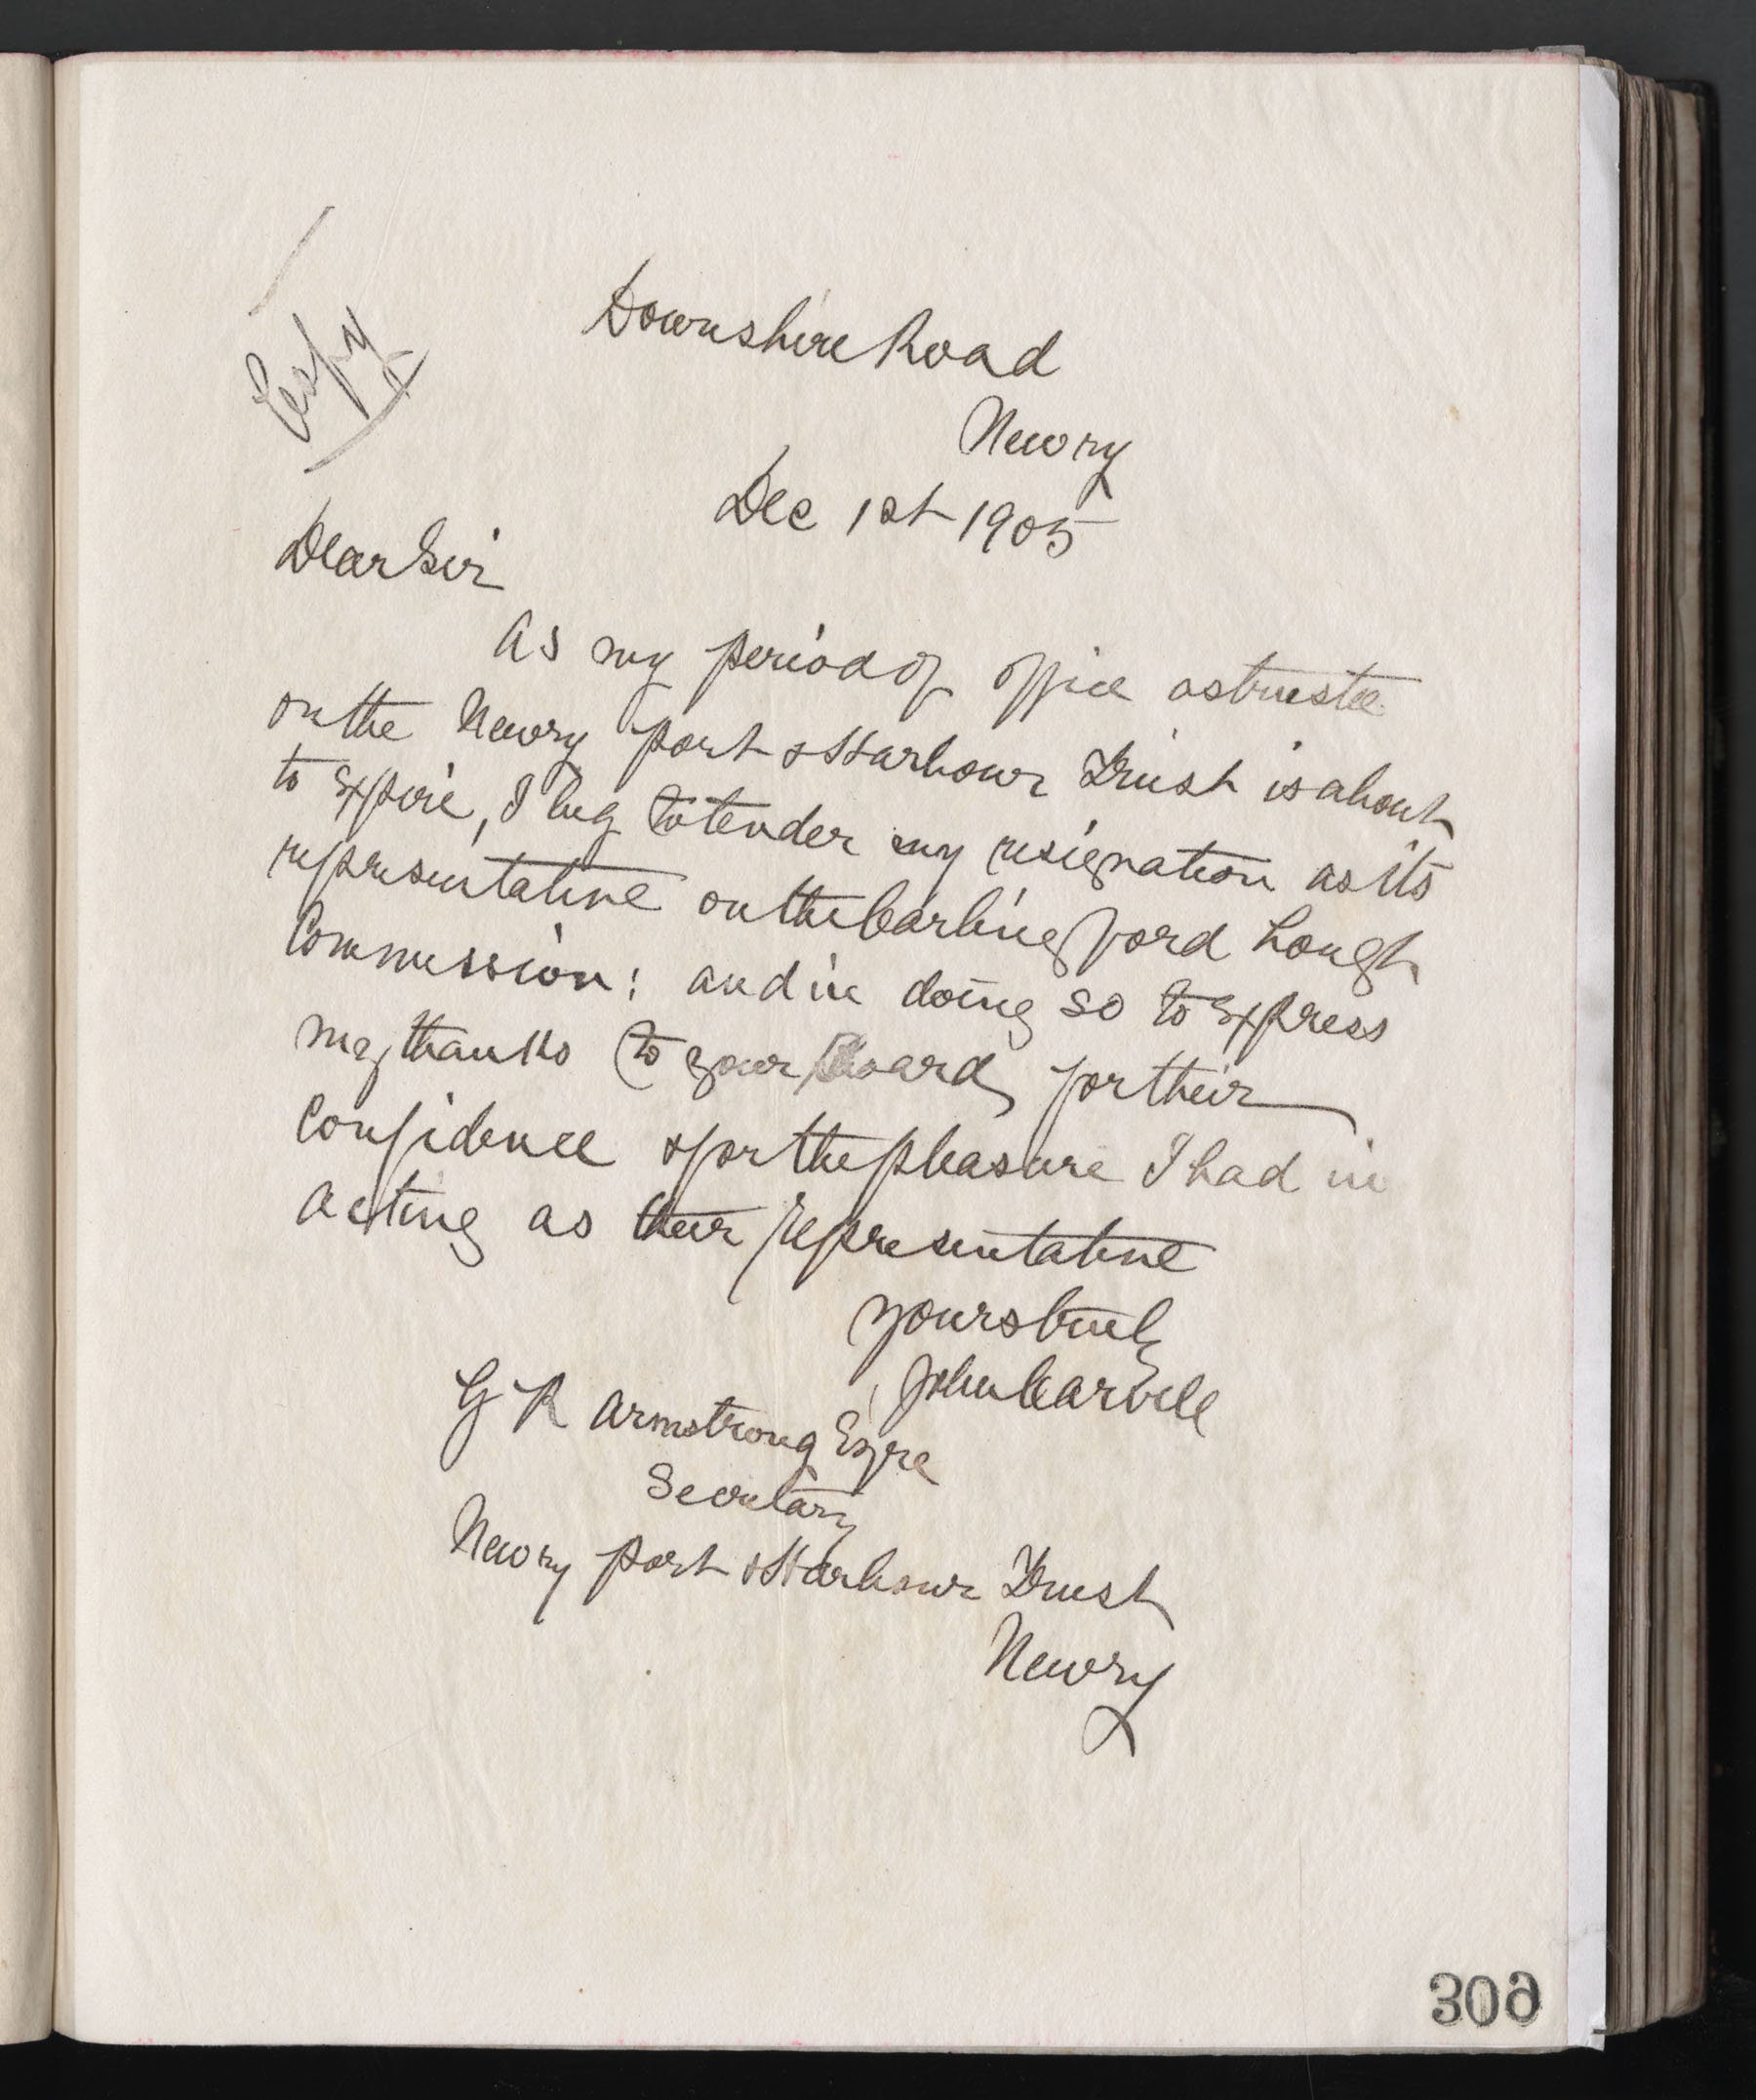 Copy
Downshire Road
Newry
Dec 1st 1905
Dear Sir
As my period of office as trustee
on the Newry Port & Harbour Trust is about
to Expire, I beg to tender my resignation as its
representative on the Carlingford Lough
Commission: and in doing so to Express
my thanks to your Board for their
Confidence & for the pleasure I had in
Acting as their representative
yours truly
John Carvill
G R Armstrong Esqre
Secretary
Newry Port & Harbour Trust
Newry